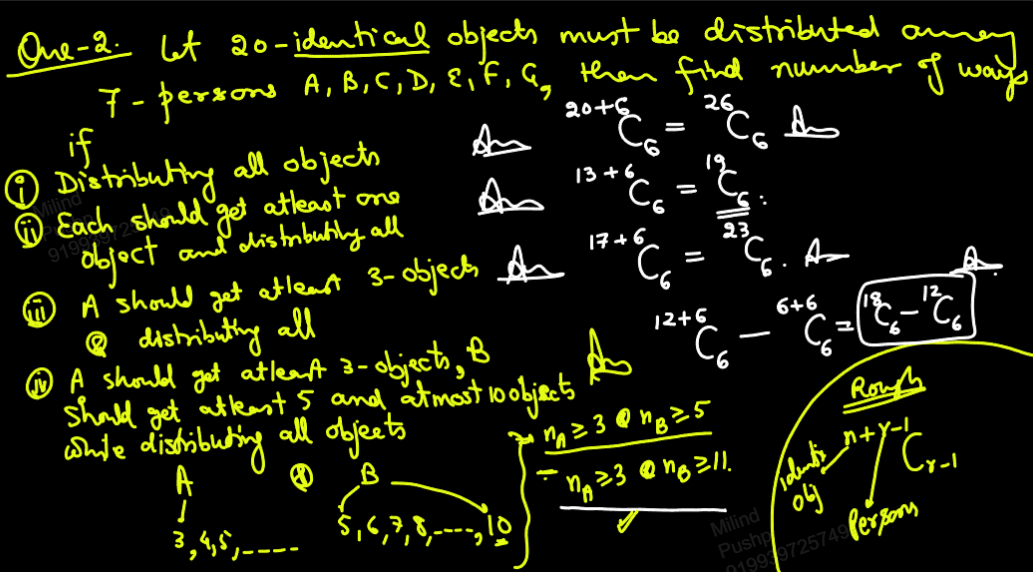 Que-2. Let 20-identical objects must be distributed among
7-persons A, B, C, D, E, F, G, then find number of ways
if
(i) Distributing all objects Ans 20+6C6 = 26C6 Ans
(ii) Each should get atleast one
object and distributing all Ans 13+6C6 = 19C6.
(iii) A should get atleast 3-objects
& distributing all Ans 17+6C6 = 23C6. Ans
(iv) A should get atleast 3-objects, B
should get atleast 5 and atmost 10 objects
while distributing all objects Ans 12+6C6 - 6+6C6 = 18C6 - 12C6 Ans.
A & B
3,4,5,---- 5,6,7,8,----,10
nA ≥ 3 & nB ≥ 5
- nA ≥ 3 & nB ≥ 11.
Rough
n+r-1Cr-1
obj
Persons
Milind
Pushp
Milind
Pushp
919939725749